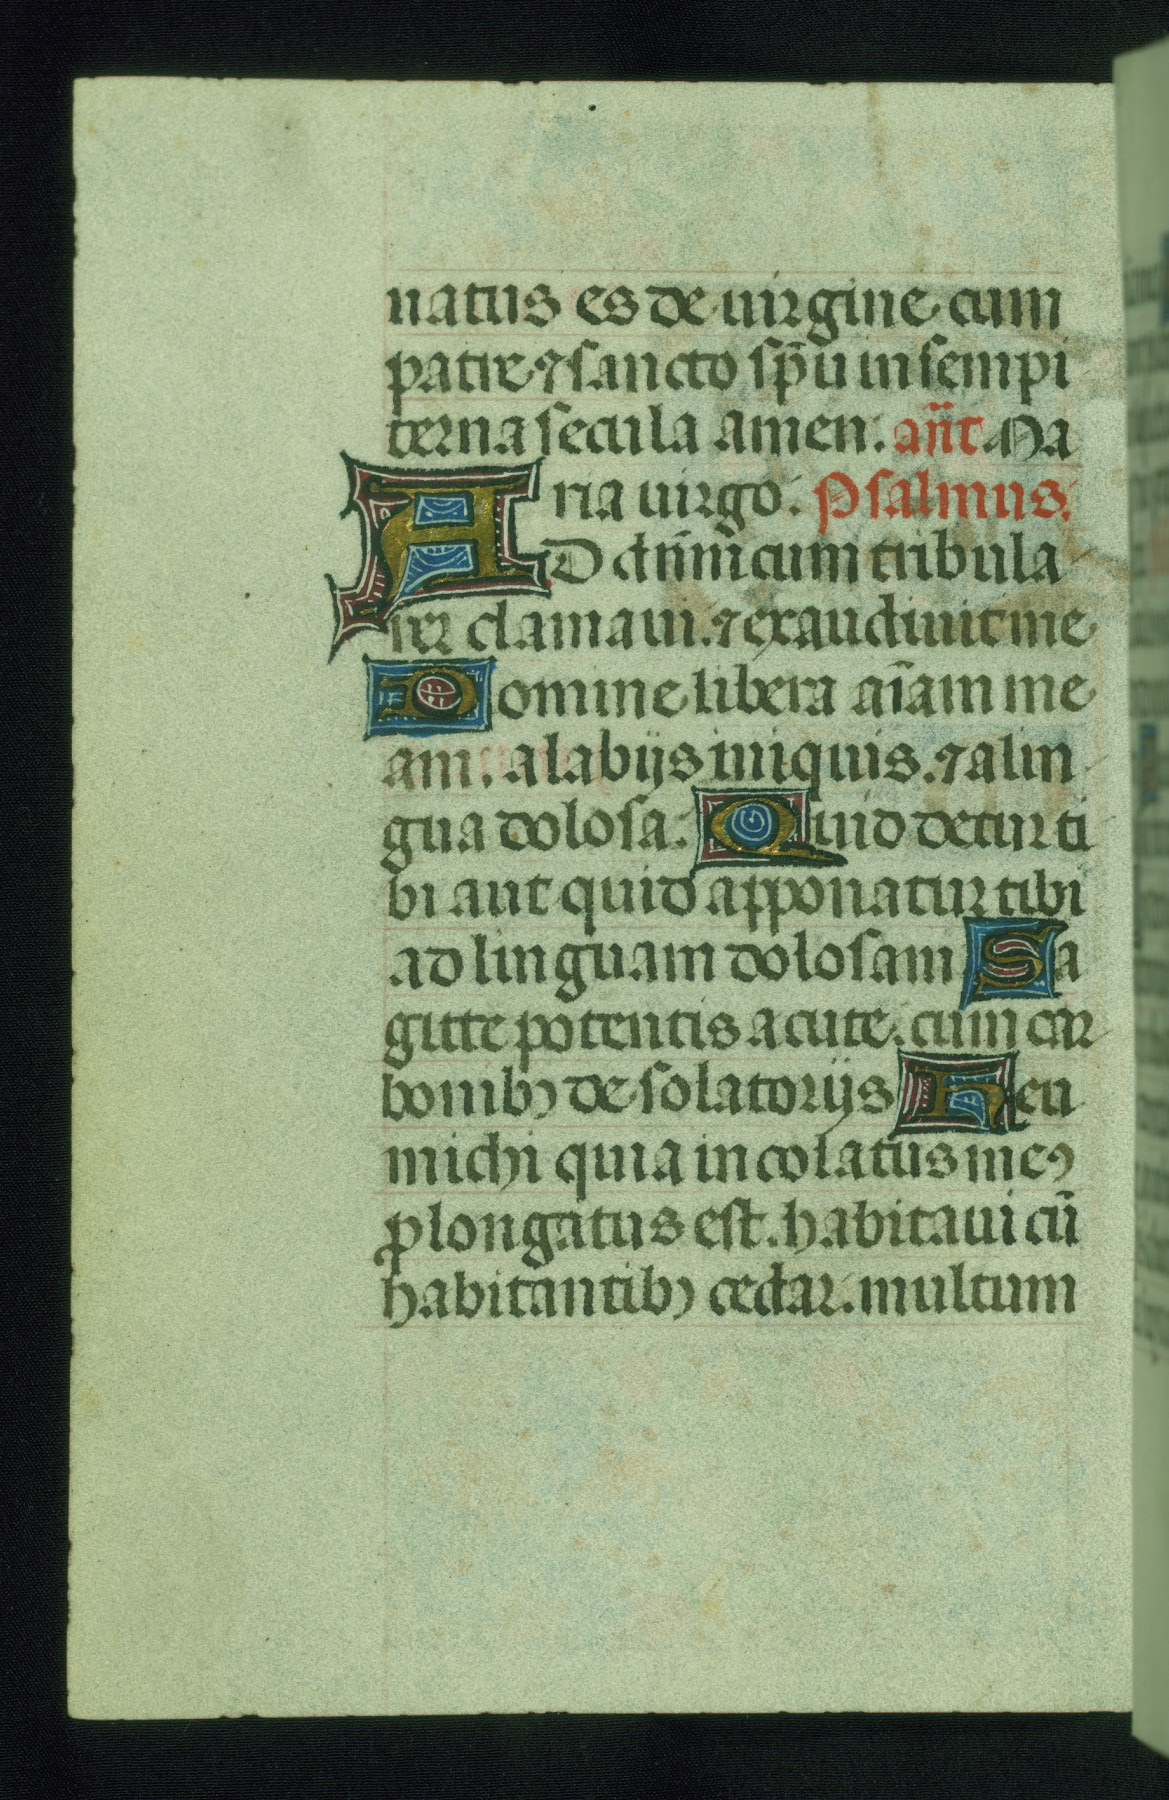 natus es de uirgine cum
patre ⁊ sancto sp̄u in sempi
terna secula amen. an̄t Ma
ria uirgo. Psalmus.
AD dn̄m cum tribula
rer clamaui. ⁊ exaudiuit me
Domine libera aīam me
am. a labijs iniquis. ⁊ a lin
gua dolosa. Quid detur ti
bi aut quid apponatur tibi
ad linguam dolosam Sa
gitte potentis acute. cum car
bonibꝫ desolatorijs Heu
michi quia incolatus meꝰ
ꝓlongatus est. habitaui cū
habitantibꝫ cedar. multum